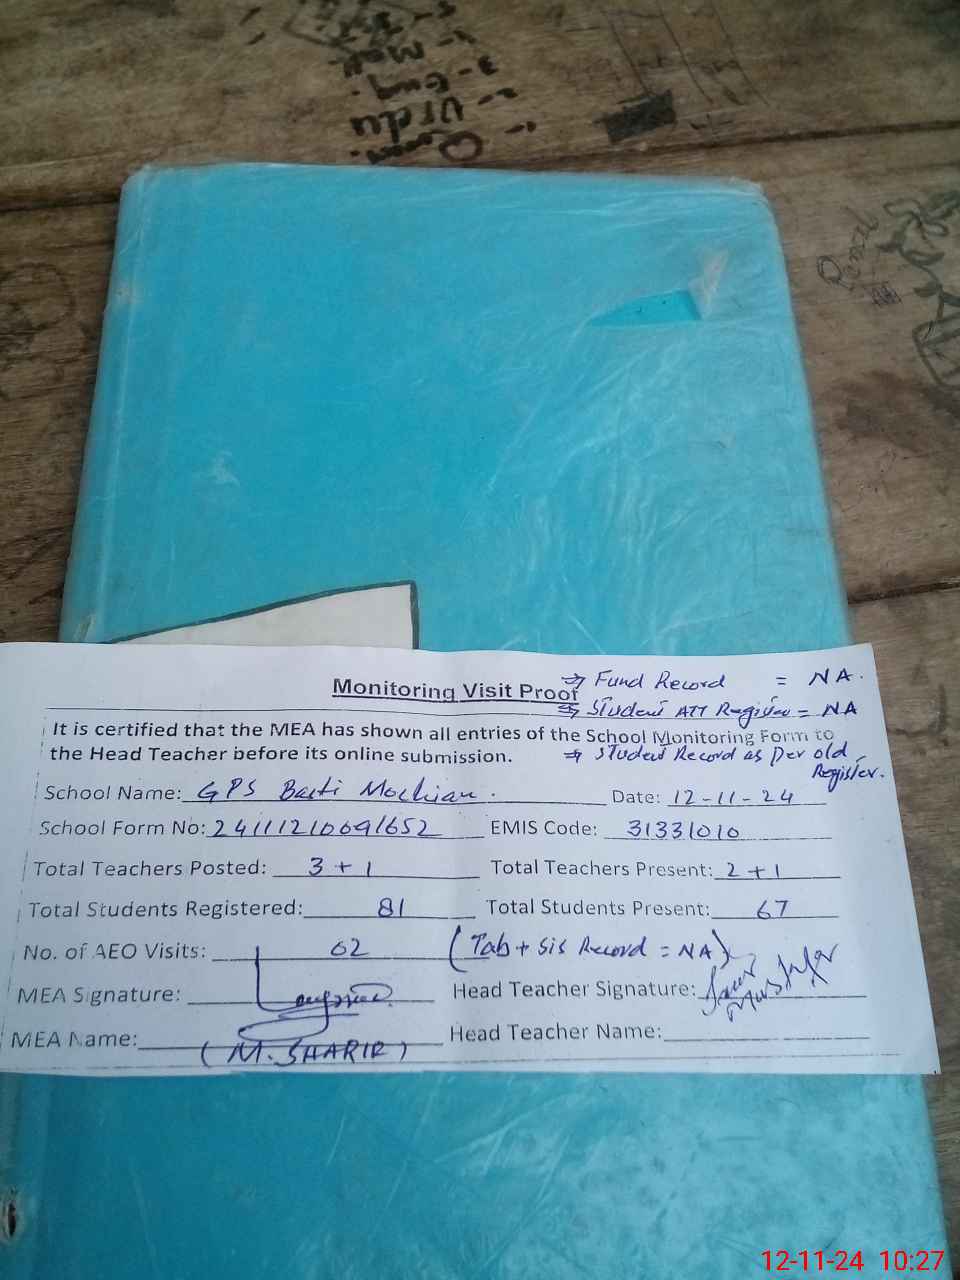 1- Urdu
2- Eng.
3- Math
Monitoring Visit Proof
⇒ Fund Record = NA.
⇒ Student ATT Register = NA
It is certified that the MEA has shown all entries of the School Monitoring Form to
the Head Teacher before its online submission.
⇒ Student Record as per old
Register.
School Name: GPS Basti Mochian. Date: 12-11-24
School Form No: EMIS Code: 31331010
Total Teachers Posted: 3 + 1 Total Teachers Present: 2 + 1
Total Students Registered: 81 Total Students Present: 67
No. of AEO Visits: 02 (Tab + Sis Record = NA)
MEA Signature: Head Teacher Signature:
MEA Name: Head Teacher Name:
(M. SHARIF)
12-11-24 10:27